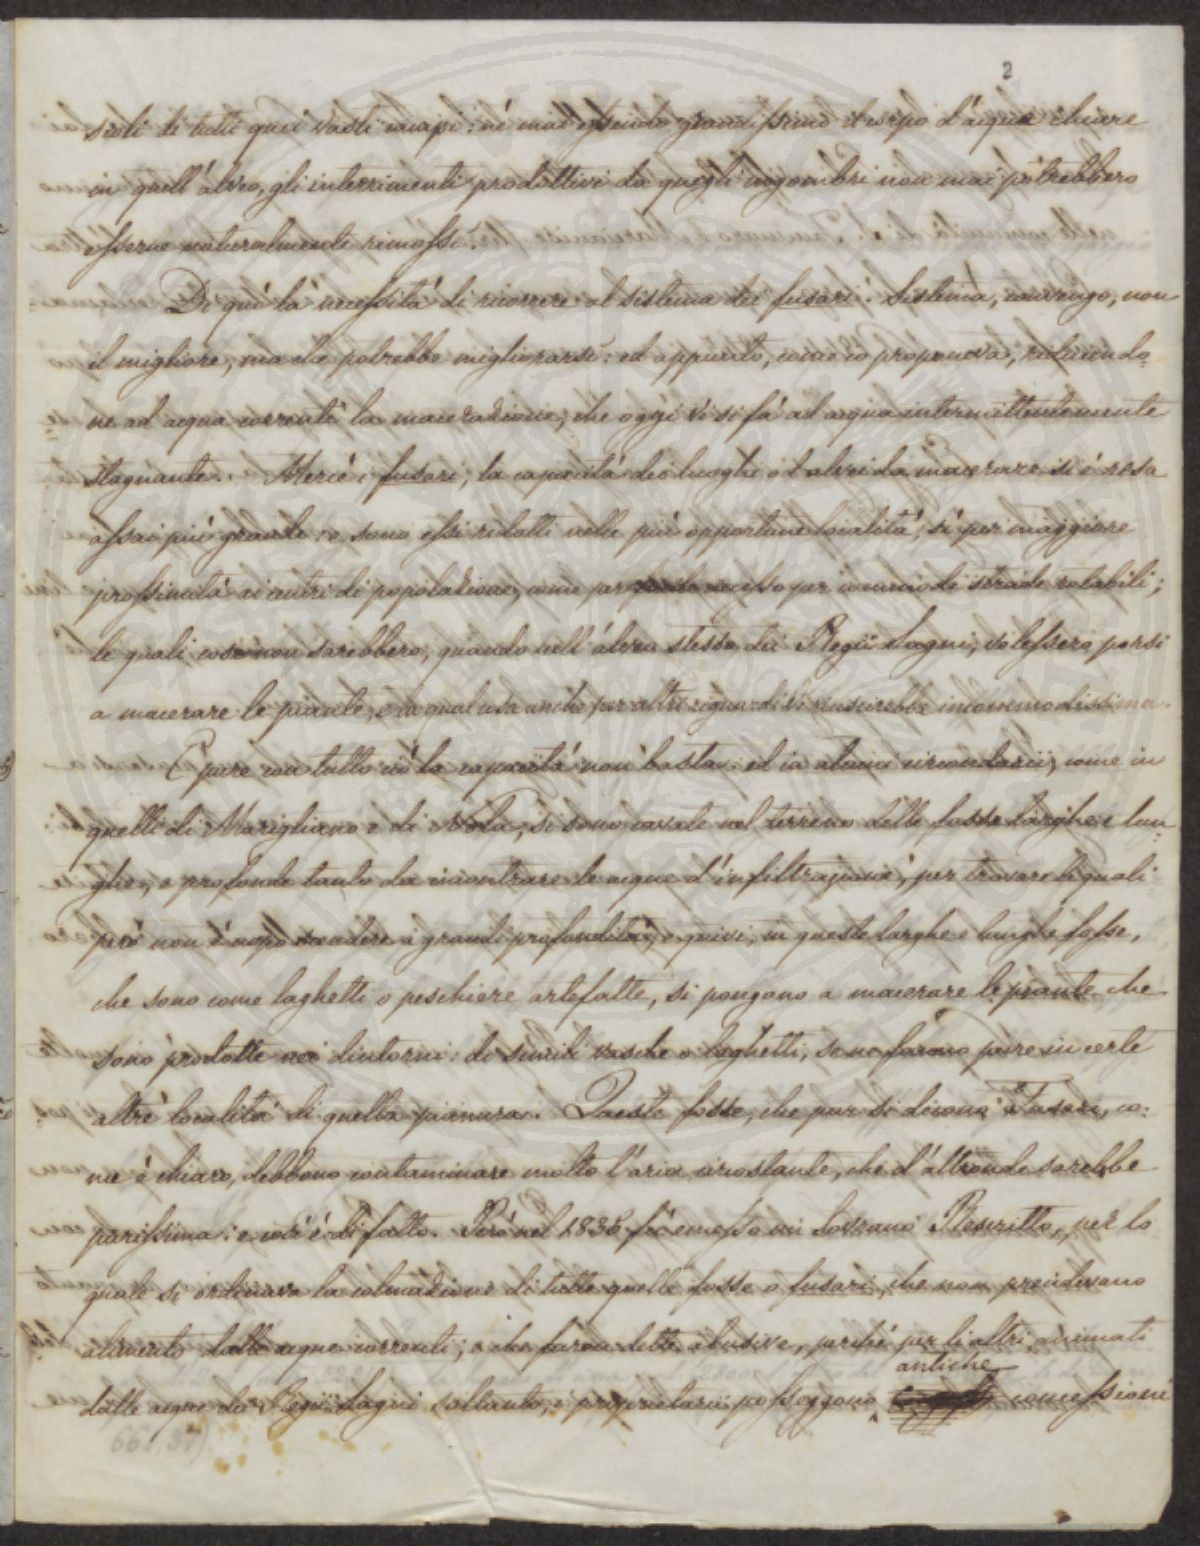 2
scoli di tutti quei vasti campi: nè mai essendo grandissimo il corpo d'acque chiare
in quell'alveo, gli interrimenti prodottivi da quegli ingombri non mai potrebbero
esserne naturalmente rimossi.
Di quì la necessità di ricorrere al sistema dei fusari: Sistema, convengo, non
il migliore, ma che potrebbe migliorarsi: ed appunto, come io proponeva, riducendo=
ne ad acqua corrente la macerazione, che oggi vi si fà ad acqua intermittentemente
stagnante. Mercè i fusari, la capacità dei luoghi od alvei da macerare si è resa
assai più grande: e sono essi ridotti nelle più opportune località, sì per maggiore
prossimità ai centri di popolazione, come per accesso per comode strade rotabili;
le quali cose non sarebbero, quando nell'alveo stesso dei Regii Lagni, volessero porsi
a macerare le piante, la qual cosa anche per altri riguardi vi riuscirebbe incommodissima.
E pure con tutto ciò la capacità non basta: ed in alcuni circondarii, come in
quelli di Marigliano e di Nola, si sono cavate nel terreno delle fosse larghe e lun=
ghe, e profonde tanto da incontrare le acque d'infiltrazione, per trovare le quali
però non è uopo scendere a grandi profondità; e quivi, in queste larghe e lunghe fosse,
che sono come laghetti o peschiere artefatte, si pongono a macerare le piante che
sono prodotte nei dintorni: di simili vasche o laghetti, se ne fanno pure in certe
altre località di quella pianura. Queste fosse, che pur si dicono Fusari, co=
me è chiaro, debbono contaminare molto l'aria circostante, che d'altronde sarebbe
purissima: e così è di fatto. Però nel 1836 fù emesso un Sovrano Rescritto, per lo
quale si ordinava la colmazione di tutte quelle fosse o fusari, che non prendevano
alimento dalle acque correnti; e che furon dette abusive, perchè per li altri, animati
antiche
dalle acque dei Regii Lagni soltanto, i proprietarii posseggono concessioni